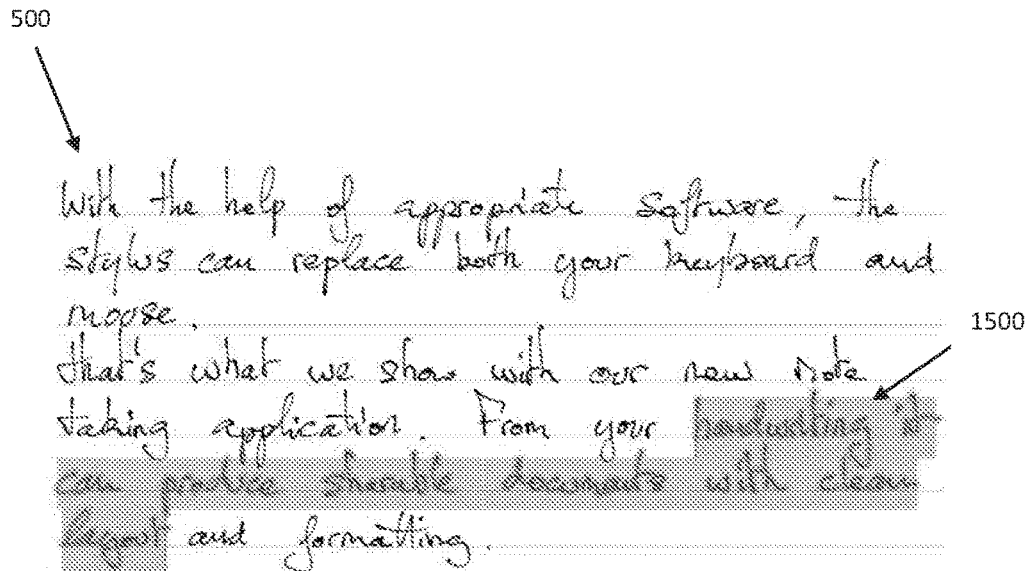 500
With the help of appropriate software, the
stylus can replace both your keyboard and
mouse.
1500
that's what we show with our new note
taking application. From your handwriting it
can produce sharable documents with clean
layout and formatting.